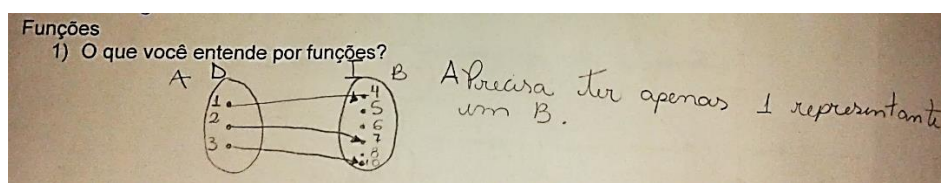 Funções
1) O que você entende por funções?
A D I B
1 2 3
4 5 6 7 8
A Precisa ter apenas 1 representante
um B.